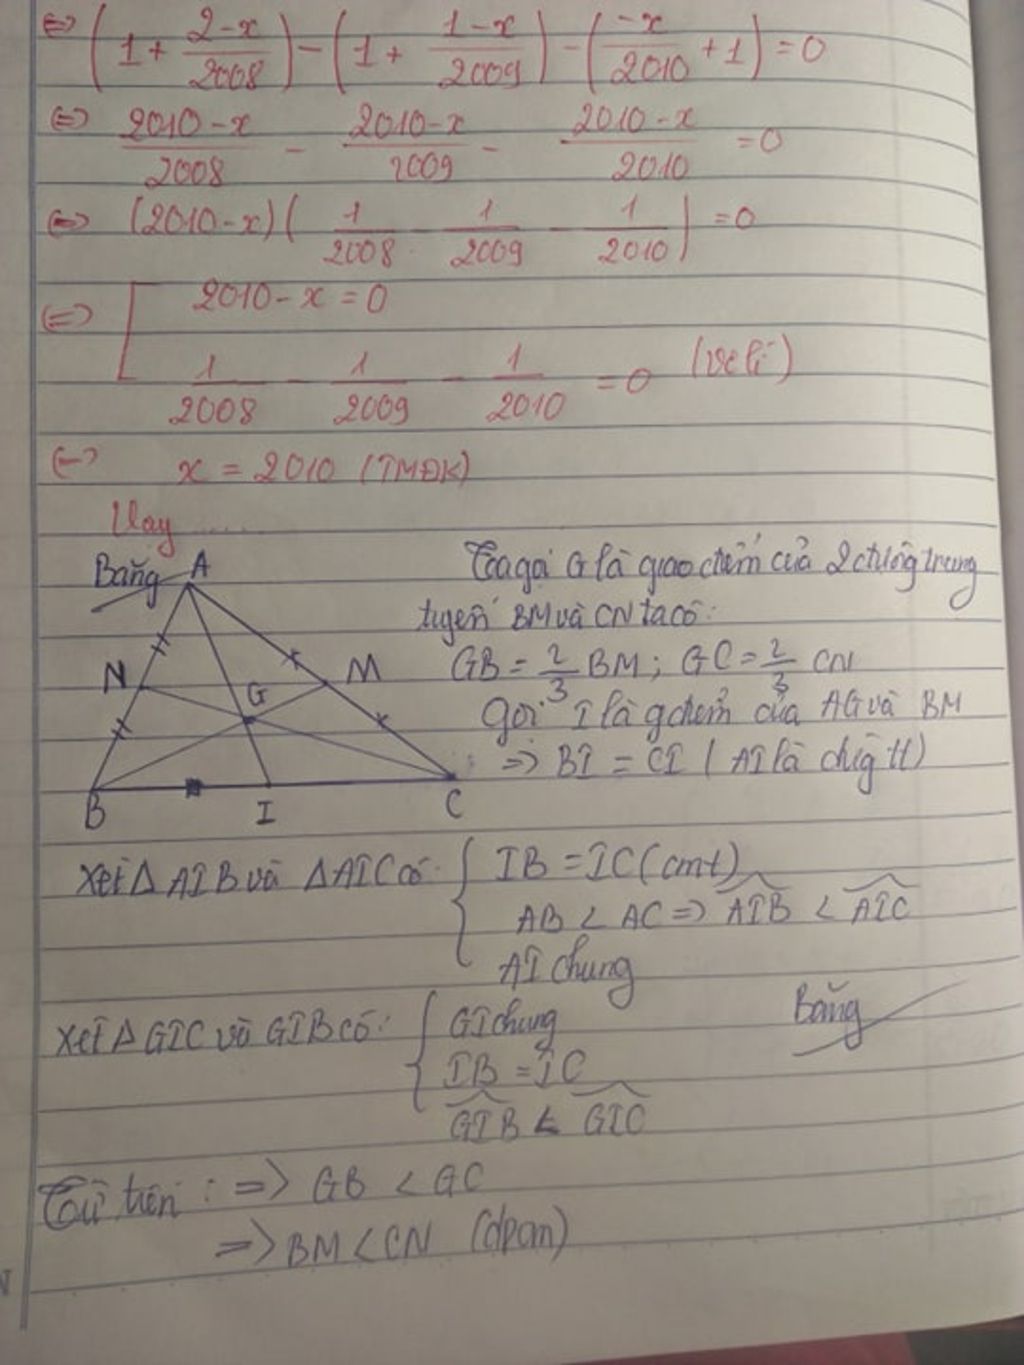 ⇔ (1 + (2-x)/2008) - (1 + (1-x)/2009) - (-x/2010 + 1) = 0
⇔ (2010-x)/2008 - (2010-x)/2009 - (2010-x)/2010 = 0
⇔ (2010-x)(1/2008 - 1/2009 - 1/2010) = 0
⇔ [ 2010-x = 0
1/2008 - 1/2009 - 1/2010 = 0 (vô lí)
⇔ x = 2010 (TMĐK)
Vậy .....
Băng
A
N
M
G
B
I
C
Ta gọi G là giao điểm của 2 đường trung
tuyến BM và CN ta có:
GB = 2/3 BM; GC = 2/3 CN
Gọi I là gđiểm của AG và BM
⇒ BI = CI (AI là đường tt)
Xét Δ AIB và ΔAIC có: { IB = IC (cmt)
AB < AC ⇒ AIB < AIC
AI chung
Xét Δ GIC và GIB có: { GI chung
IB = IC
GIB < GIC
Băng
Từ trên: ⇒ GB < GC
⇒ BM < CN (đpcm)